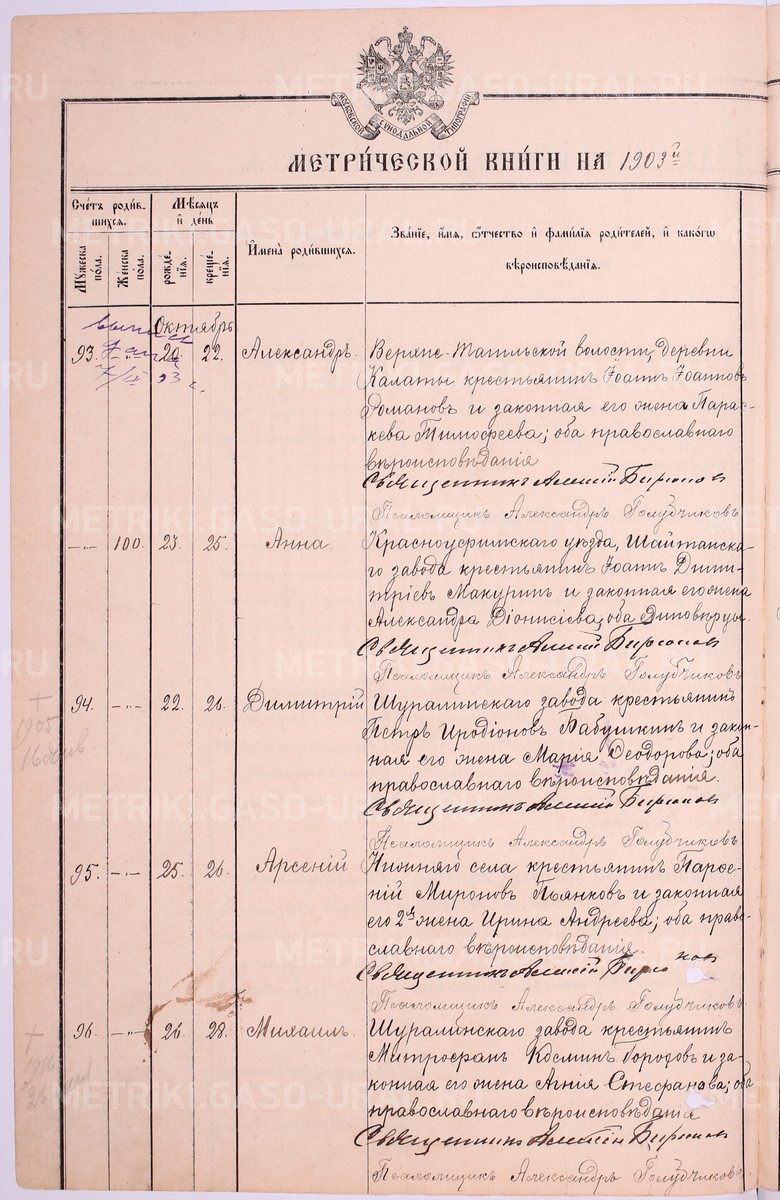 МОСКОВСКОЙ СѴНОДАЛЬНОЙ ТИПОГРАФІИ
МЕТРИ́ЧЕСКОЙ КНИ́ГИ НА 1903й
Счетъ роди́в-
шихся.
Мѣсяцъ
и҆ де́нь
И҆мена̀ роди́вшихся.
Зва́ніе, и҆́мя, ѻ҆́тчество и҆ фами́лія роди́телей, и҆ како́гѡ
вѣроисповѣ́данія.
Мꙋжеска по́ла.
Же́нска по́ла.
рожде́-
нія.
креще́-
нія.
Октябрь
93. -"- 20. 22. Александръ. Верхне-Тагильской волости, деревни
7/IX 23 г.
Калаты крестьянинъ Іоаннъ Іоанновъ
Романовъ и законная его жена Парас-
кева Тимофеева; оба православнаго
вѣроисповѣданія
Священникъ Алексій Бирюков
Псаломщикъ Александръ Голубчиковъ
-"- 100. 23. 25. Анна. Красноуфимскаго уѣзда, Шайтанска-
го завода крестьянинъ Іоаннъ Дими-
тріевъ Макуринъ и законная его жена
Александра Діонисіева; оба единовѣрцы.
Священникъ Алексій Бирюков
Псаломщикъ Александръ Голубчиковъ
94. -"- 22. 26. Димитрій Шуралинскаго завода крестьянинъ
1905
Петръ Иродіоновъ Бабушкинъ и закон-
16
ная его жена Марія Ѳеодорова; оба
православнаго вѣроисповѣданія.
Священникъ Алексій Бирюков
Псаломщикъ Александръ Голубчиковъ
95. -"- 25. 26. Арсеній Нионяго села крестьянинъ Парѳе-
ній Мироновъ Пьянковъ и законная
его 2я жена Ирина Андреева; оба право-
славнаго вѣроисповѣданія.
Священникъ Алексій Бирюков
Псаломщикъ Александръ Голубчиковъ
96. -"- 26. 28. Михаилъ. Шуралинскаго завода крестьянинъ
Митрофанъ Космин и за-
конная его жена Агнія Стефанова; оба
православнаго вѣроисповѣданія
Священникъ Алексій Бирюков
Псаломщикъ Александръ Голубчиковъ
METRIKI.GASO-URAL.RU